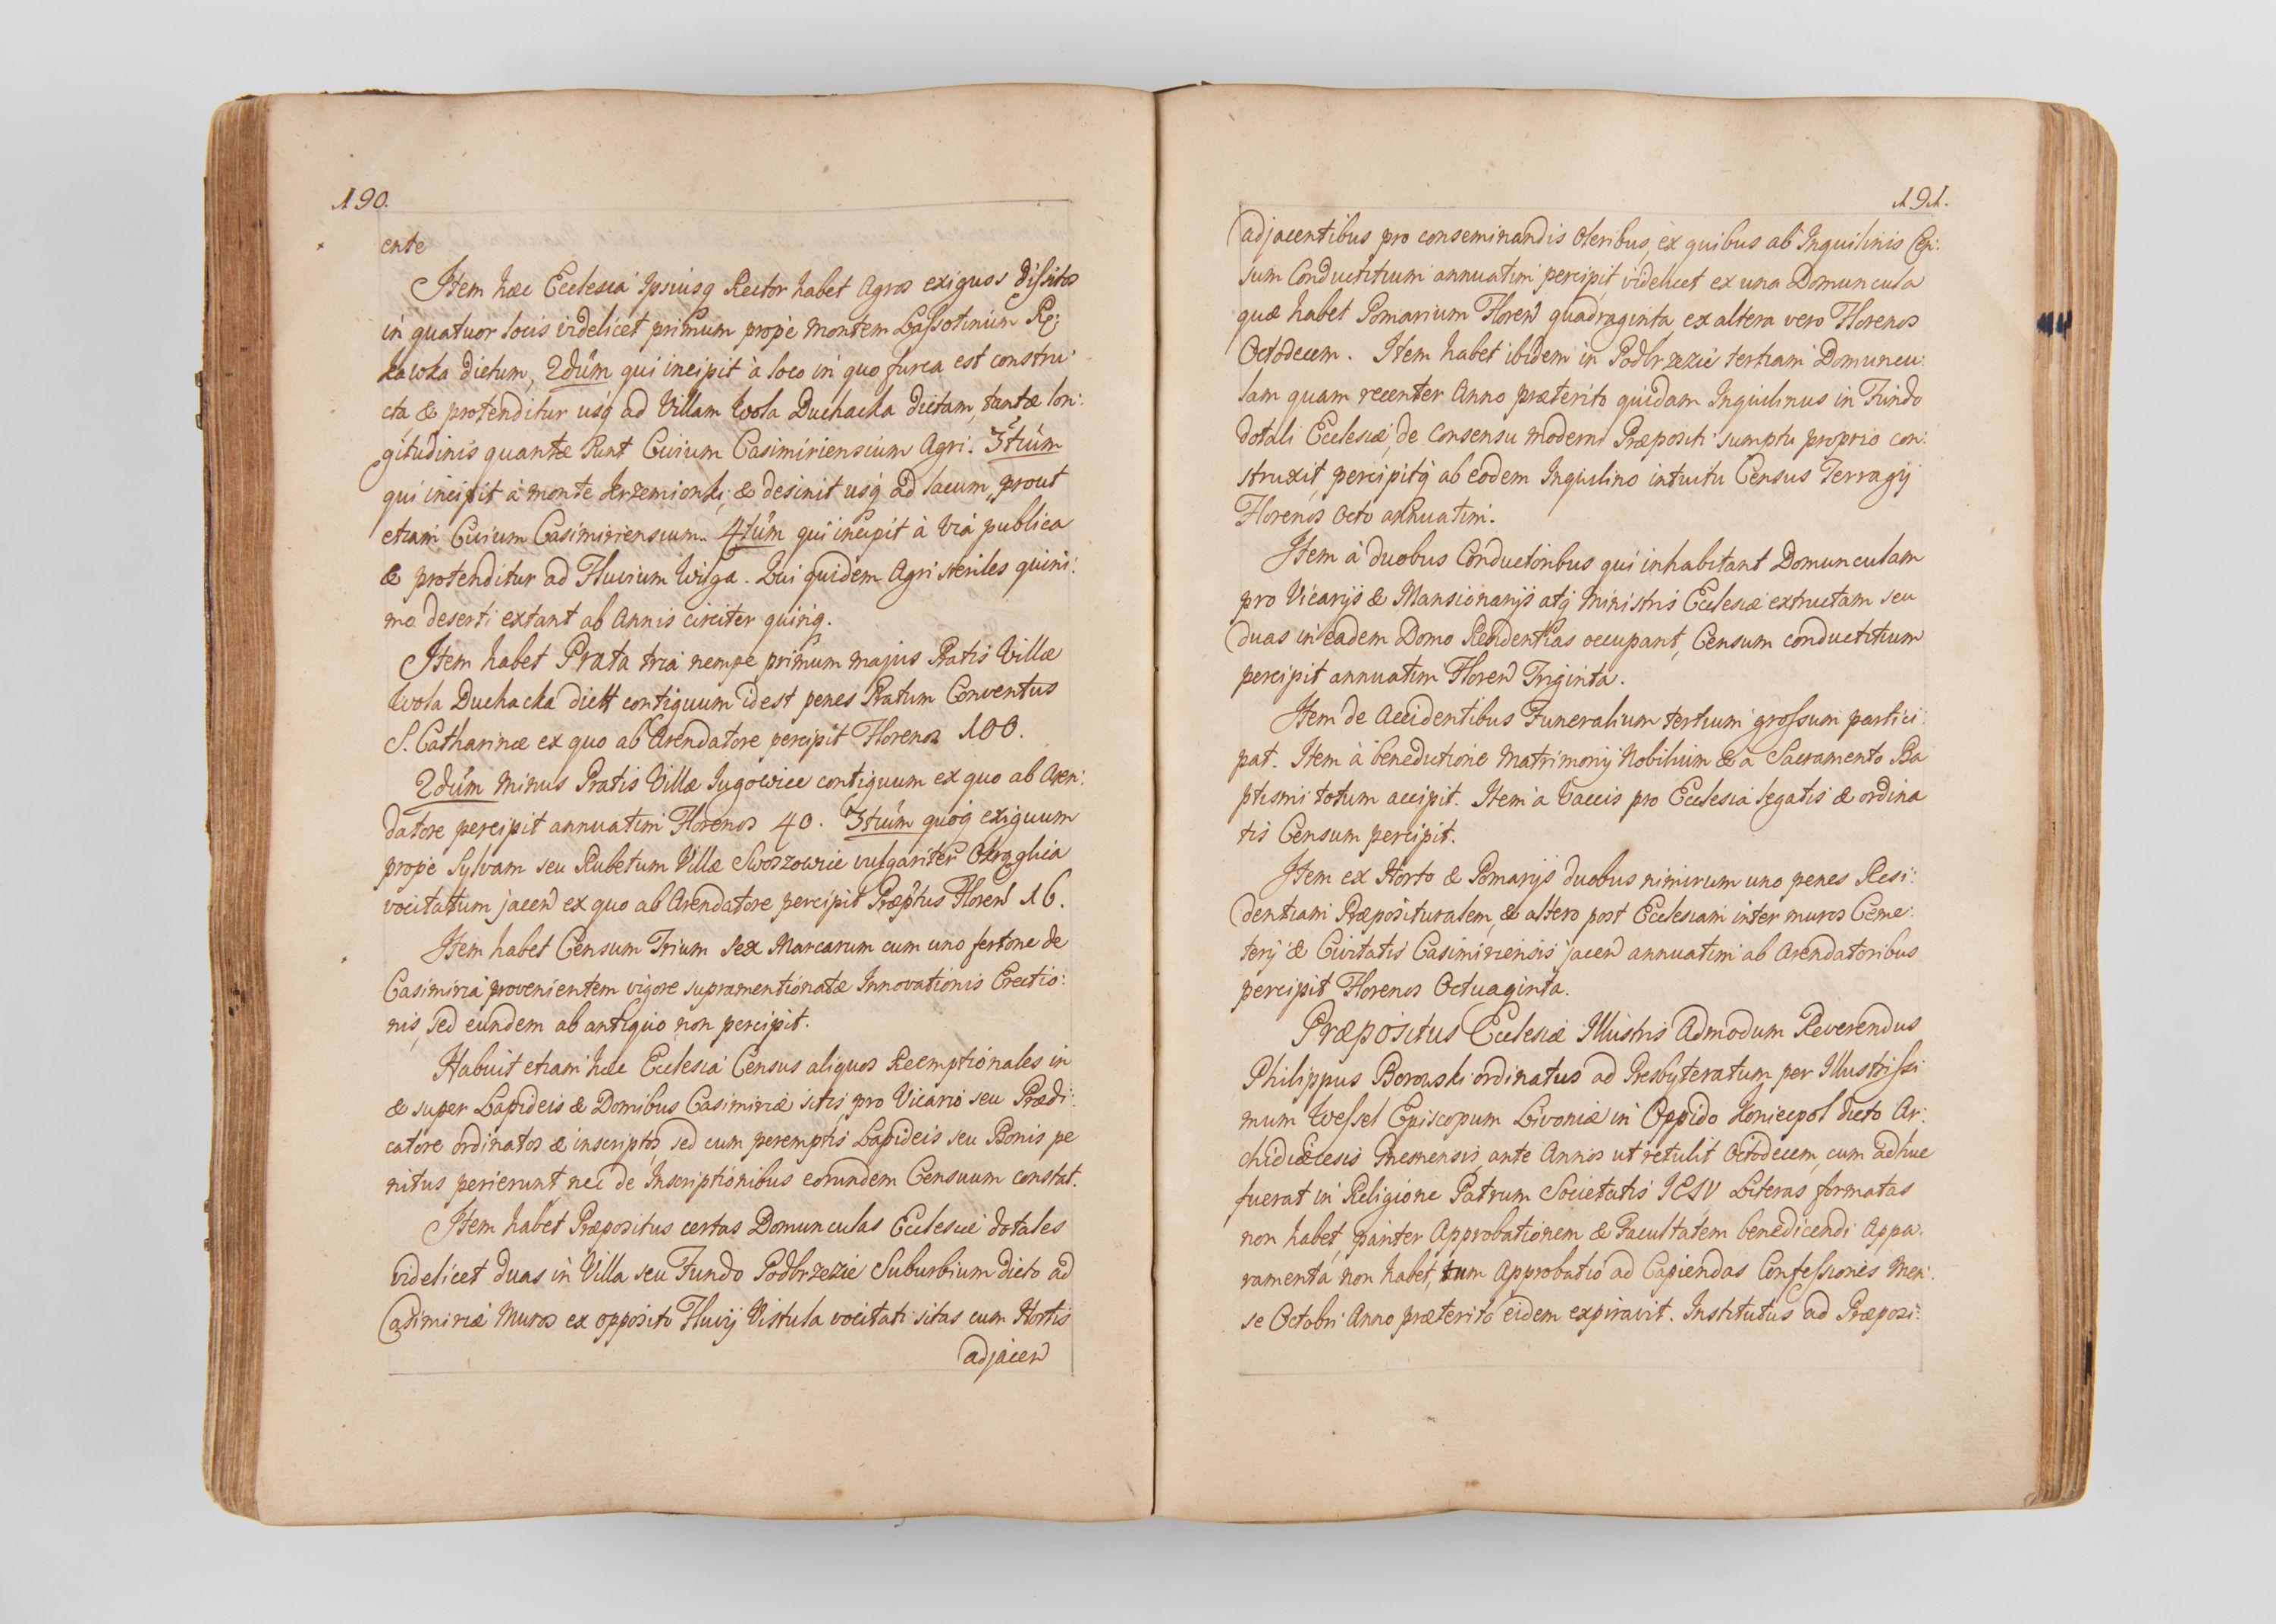 190.
ente
Item hæc Ecclesia Ipsiusq Rector habet Agros exiguos dissitos
in quatuor locis videlicet primum prope Montem Lassotinum Rę:
kawka dictum, 2dum qui incipit à loco in quo furca est constru:
cta, & protenditur usq ad Villam Wola Duchacka dictam, tantæ lon:
gitudinis quantæ sunt Civium Casimiriensium Agri. 3tium
qui incipit à monte Krzemionki, & desinit usq ad lacum, prout
etiam Civium Casimiriensium. 4tum qui incipit à Via publica
& protenditur ad Fluvium Wilga. Qui quidem Agri steriles quini:
mo deserti extant ab Annis circiter quinq.
Item habet Prata tria nempe primum majus Pratis Villæ
Wola Duchacka dictæ contiguum id est penes Pratum Conventus
S. Catharinæ ex quo ab Arendatore percipit Florenos 100.
2dum minus Pratis Villæ Jugowice contiguum ex quo ab Aren:
datore percipit annuatim Florenos 40. 3tium quoq exiguum
prope Sylvam seu Rubetum Villæ Swoszowice vulgariter
vocitatum jacen ex quo ab Arendatore percipit Præptus Floren 16.
Item habet Censum Trium sex Marcarum cum uno fertone de
Casimiria provenientem vigore supramentionatæ Innovationis Erectio:
nis, sed eundem ab antiquo non percipit.
Habuit etiam hæc Ecclesia Census aliquos Reemptionales in
& super Lapideis & Domibus Casimiriæ sitis pro Vicario seu Prædi:
catore ordinatos & inscriptos, sed cum peremptis Lapideis seu Bonis pe
nitus perierunt nec de Inscriptionibus eorundem Censuum constat.
Item habet Præpositus certas Domunculas Ecclesiæ dotales
videlicet duas in Villa seu Fundo Podbrzezie Suburbium dicto ad
Casimiriæ Muros ex opposito Fluvij Vistula vocitati sitas cum Hortis
adjacen
191.
adjacentibus pro conseminandis Oleribus, ex quibus ab Inquilinis Cen:
sum Conductitium annuatim percipit videlicet ex una Domuncula
quæ habet Pomarium Floren quadraginta, ex altera vero Florenos
Octodecem. Item habet ibidem in Podbrzezie tertiam Domuncu:
lam quam recenter Anno præterito quidam Inquilinus in Fundo
dotali Ecclesiæ, de consensu moderni Præpositi sumptu proprio con:
struxit, percipitq ab eodem Inquilino intuitu Census Terragij
Florenos Octo annuatim.
Item à duobus Conductoribus qui inhabitant Domunculam
pro Vicarijs & Mansionarijs atq Ministris Ecclesiæ extructam seu
duas in eadem Domo Residentias occupant, Censum conductitium
percipit annuatim Floren Triginta.
Item de Accidentibus Funeralium tertium grossum partici:
pat. Item à benedictione Matrimonij Nobilium & à Sacramento Ba
ptismi totum accipit. Item a Vaccis pro Ecclesia legatis & ordina
tis Censum percipit.
Item ex Horto & Pomarijs duobus nimirum uno penes Resi:
dentiam Præposituralem, & altero post Ecclesiam inter muros Ceme:
terij & Civitatis Casimiriensis jacen annuatim ab Arendatoribus
percipit Florenos Octuaginta.
Præpositus Ecclesiæ Illustris Admodum Reverendus
Philippus Borowski ordinatus ad Presbyteratum per Illustrissi
mum Wessel Episcopum Livoniæ in Oppido Koniecpol dicto Ar:
chidiæcesis Gnesnensis, ante Annos ut retulit Octodecem, cum adhuc
fuerat in Religione Patrum Societatis IESV Literas formatas
non habet, pariter Approbationem & Facultatem benedicendi Appa:
ramenta non habet, tum Approbatio ad Capiendas Confessiones Men:
se Octobri Anno præterito eidem expiravit. Institutus ad Præposi: